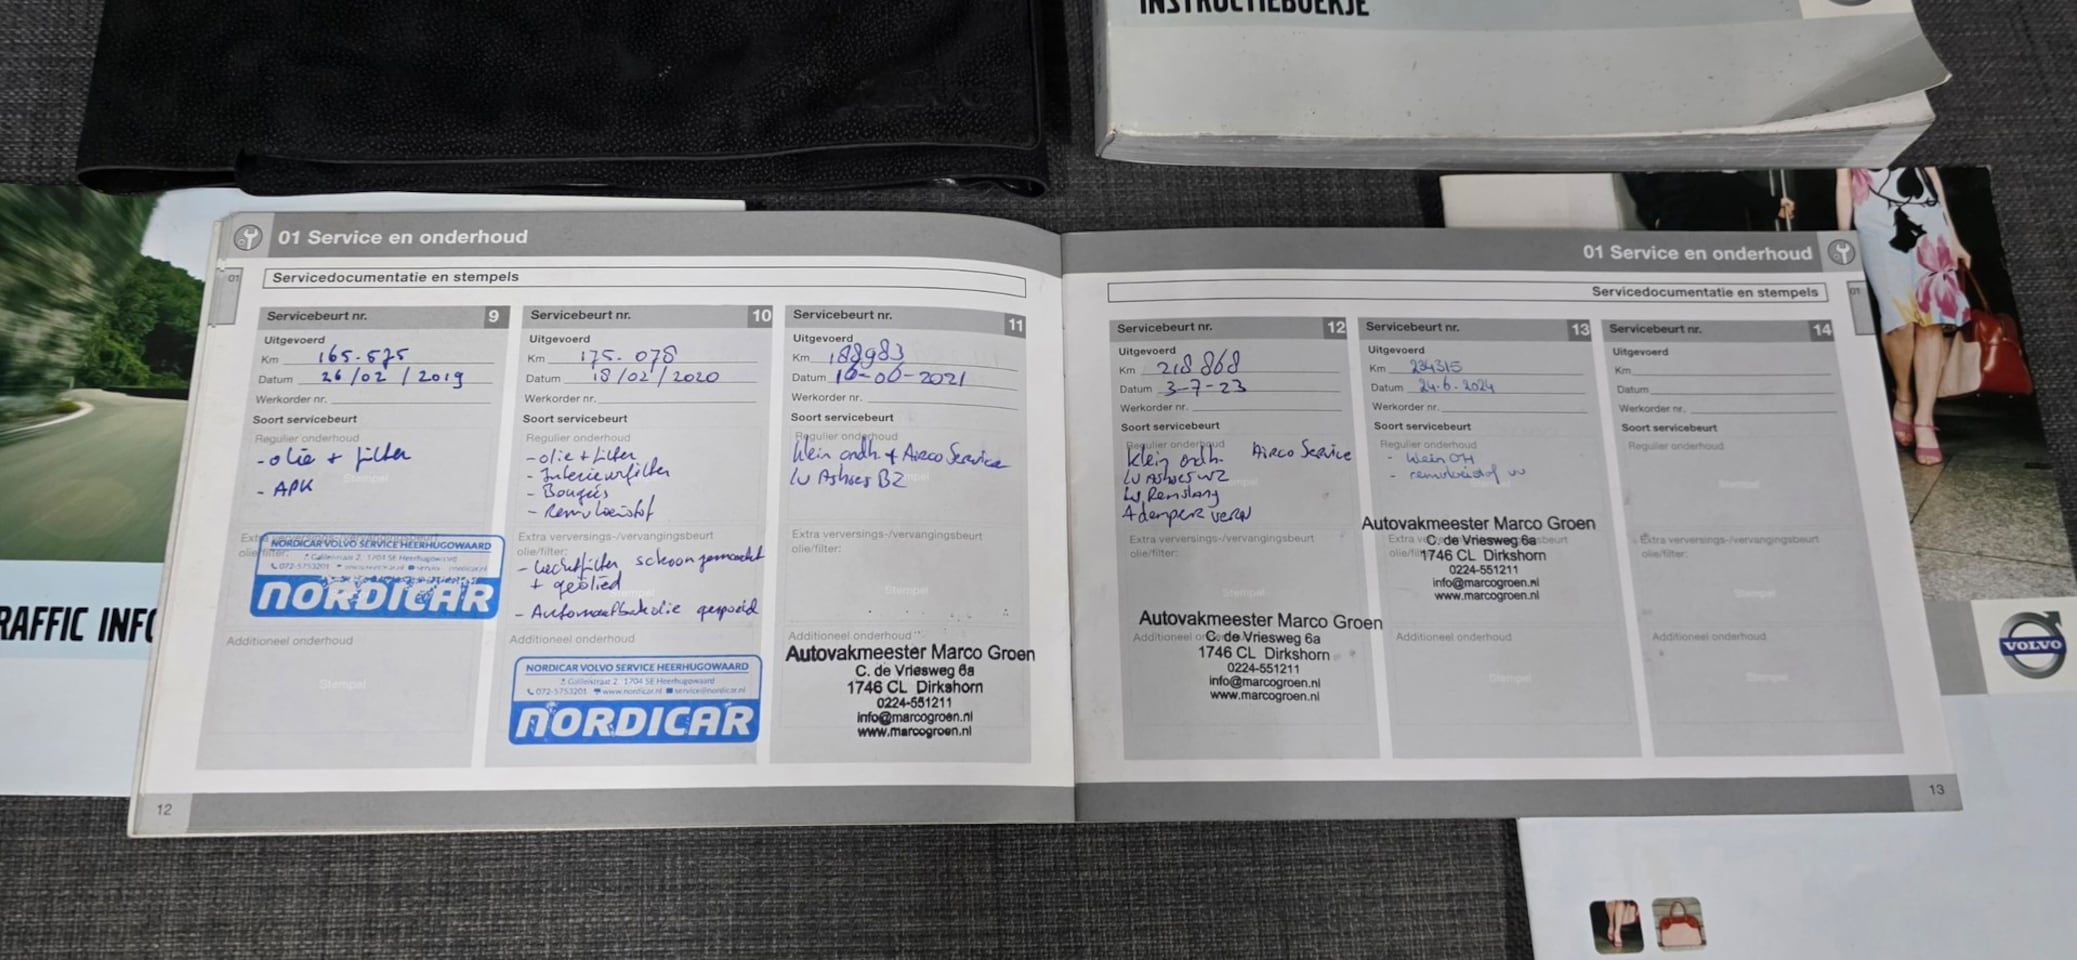 INSTRUCTIEBOEKJE
01 Service en onderhoud
01
Servicedocumentatie en stempels
Servicebeurt nr. 9
Uitgevoerd
Km 165.575
Datum 26/02/2019
Werkorder nr.
Soort servicebeurt
Regulier onderhoud
- olie + filter
- APK
Stempel
Extra verversings-/vervangingsbeurt
olie/filter:
NORDICAR VOLVO SERVICE HEERHUGOWAARD
Galileistraat 2, 1704 SE Heerhugowaard
072-5753201 www.nordicar.nl
NORDICAR
Additioneel onderhoud
Stempel
Servicebeurt nr. 10
Uitgevoerd
Km 175.078
Datum 18/02/2020
Werkorder nr.
Soort servicebeurt
Regulier onderhoud
- olie + filter
- Interieurfilter
- Bougies
- Remvloeistof
Extra verversings-/vervangingsbeurt
olie/filter:
- Luchtfilter schoongemaakt
+ geölied
- Automaatbakolie gespoeld
Additioneel onderhoud
NORDICAR VOLVO SERVICE HEERHUGOWAARD
Galileistraat 2, 1704 SE Heerhugowaard
072-5753201 www.nordicar.nl service@nordicar.nl
NORDICAR
Servicebeurt nr. 11
Uitgevoerd
Km 188983
Datum 16-06-2021
Werkorder nr.
Soort servicebeurt
Regulier onderhoud
Klein ondh. + Airco Service
LV Ashoes BZ
Extra verversings-/vervangingsbeurt
olie/filter:
Stempel
Additioneel onderhoud
Autovakmeester Marco Groen
C. de Vriesweg 6a
1746 CL Dirkshorn
0224-551211
info@marcogroen.nl
www.marcogroen.nl
12
01 Service en onderhoud
01
Servicedocumentatie en stempels
Servicebeurt nr. 12
Uitgevoerd
Km 218868
Datum 3-7-23
Werkorder nr.
Soort servicebeurt
Regulier onderhoud
Klein ondh. Airco Service
LV Ashoes WZ
LV Remslang
Adempers verv
Extra verversings-/vervangingsbeurt
olie/filter:
Stempel
Additioneel onderhoud
Autovakmeester Marco Groen
C. de Vriesweg 6a
1746 CL Dirkshorn
0224-551211
info@marcogroen.nl
www.marcogroen.nl
Servicebeurt nr. 13
Uitgevoerd
Km 234315
Datum 24.6.2024
Werkorder nr.
Soort servicebeurt
Regulier onderhoud
- klein OH
- remvloeistof vv
Autovakmeester Marco Groen
C. de Vriesweg 6a
1746 CL Dirkshorn
0224-551211
info@marcogroen.nl
www.marcogroen.nl
Additioneel onderhoud
Stempel
Servicebeurt nr. 14
Uitgevoerd
Km
Datum
Werkorder nr.
Soort servicebeurt
Regulier onderhoud
Stempel
Extra verversings-/vervangingsbeurt
olie/filter:
Stempel
Additioneel onderhoud
Stempel
13
RAFFIC INFO
VOLVO